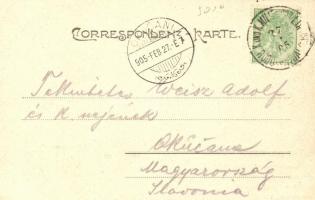 5210
CORRESPONDENZ-KARTE.
905 FEB 27
Tekintetes Weisz Adolf
és k. nejének
Okučane
Magyarország
Slavonia